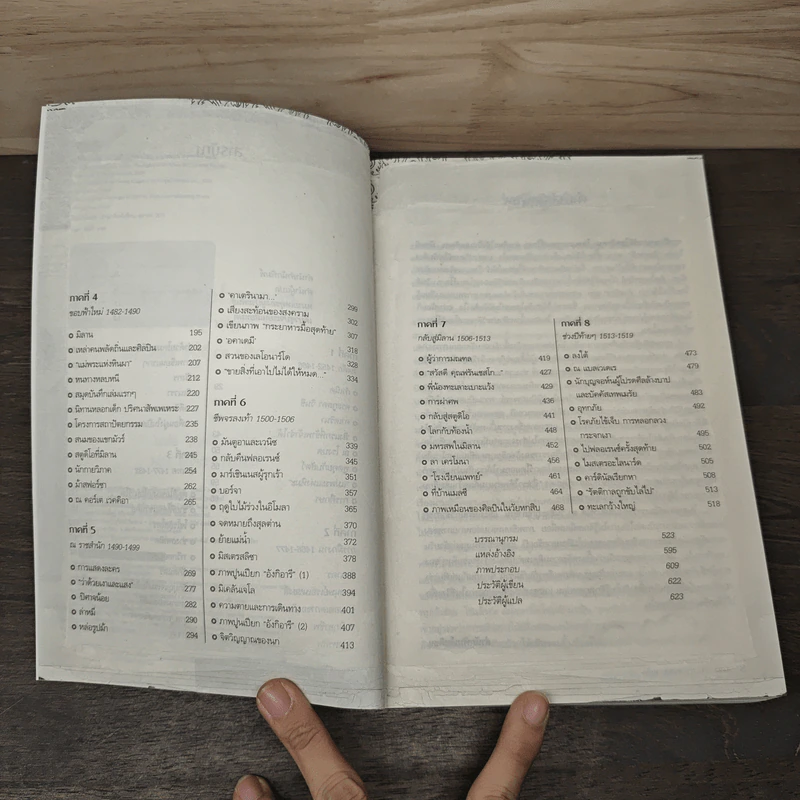 ภาคที่ 4
ขอบฟ้าใหม่ 1482-1490
มิลาน 195
เหล่าคนพลัดถิ่นและศิลปิน 202
"แม่พระแห่งหินผา" 207
หนทางหลบหนี 212
สมุดบันทึกเล่มแรกๆ 220
นิทานหลอกเด็ก ปริศนาสัพเพเหระ 227
โครงการสถาปัตยกรรม 235
สนมของแขกมัวร์ 238
สตูดิโอที่มิลาน 245
นักกายวิภาค 254
ม้าสฟอร์ซา 262
ณ คอร์เต เวคคีอา 265
ภาคที่ 5
ณ ราชสำนัก 1490-1499
การแสดงละคร 269
"ว่าด้วยเงาและแสง" 277
ปีศาจน้อย 282
ล่าหมี 290
หล่อรูปม้า 294
"คาเตรินามา..." 299
เสียงสะท้อนของสงคราม 302
เขียนภาพ "กระยาหารมื้อสุดท้าย" 307
"อคาเดมี" 318
สวนของเลโอนาร์โด 328
"ขายสิ่งที่เอาไปไม่ได้ให้หมด..." 334
ภาคที่ 6
ชีพจรลงเท้า 1500-1506
มันตูอาและเวนิซ 339
กลับคืนฟลอเรนซ์ 345
มาร์เชินเนสผู้รุกเร้า 351
บอร์จา 357
ฤดูใบไม้ร่วงในอิโมลา 365
จดหมายถึงสุลต่าน 370
ย้ายแม่น้ำ 372
มิสเตรสลิซา 378
ภาพปูนเปียก "อังกิอารี" (1) 388
มิเคลันเจโล 394
ความตายและการเดินทาง 401
ภาพปูนเปียก "อังกิอารี" (2) 407
จิตวิญญาณของนก 413
ภาคที่ 7
กลับสู่มิลาน 1506-1513
ผู้ว่าการมณฑล 419
"สวัสดี คุณฟรันเชสโก..." 427
พี่น้องทะเลาะเบาะแว้ง 429
การผ่าศพ 436
กลับสู่สตูดิโอ 441
โลกกับท้องน้ำ 448
มหรสพในมิลาน 452
ลา เครโมนา 456
"โรงเรียนแพทย์" 461
ที่บ้านเมลซี 464
ภาพเหมือนของศิลปินในวัยหกสิบ 468
ภาคที่ 8
ช่วงปีท้ายๆ 1513-1519
ลงใต้ 473
ณ เบลเวเดเร 479
นักบุญจอห์นผู้โปรดศีลล้างบาป
และบัคคัสเทพเมรัย 483
อุทกภัย 492
โรคภัยไข้เจ็บ การหลอกลวง
กระจกเงา 495
ไปฟลอเรนซ์ครั้งสุดท้าย 502
ไมสเตรอะไลนาร์ด 505
คาร์ดินัลเรียกหา 508
"รัตติกาลถูกขับไล่ไป" 513
ทะเลกว้างใหญ่ 518
บรรณานุกรม 523
แหล่งอ้างอิง 595
ภาพประกอบ 609
ประวัติผู้เขียน 622
ประวัติผู้แปล 623